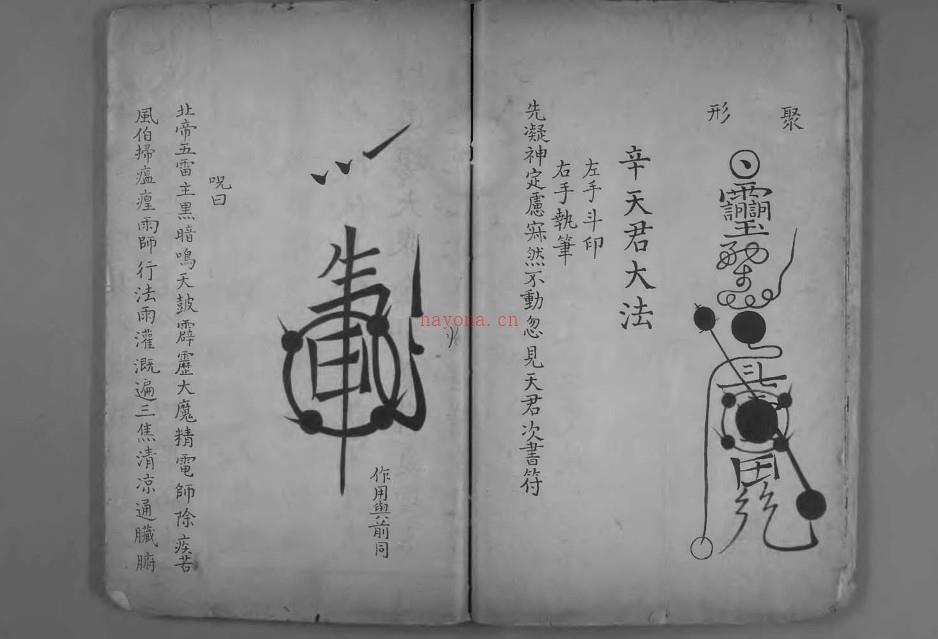 聚形
辛天君大法
左手斗印
右手執筆
先凝神定慮寂然不動忽見天君次書符
作用與前同
咒曰
北帝五雷主黑暗鳴天鼓霹靂大魔精電師除疾苦
風伯掃瘟瘽雨師行法雨灌溉遍三焦清凉通臟腑
nayona.cn